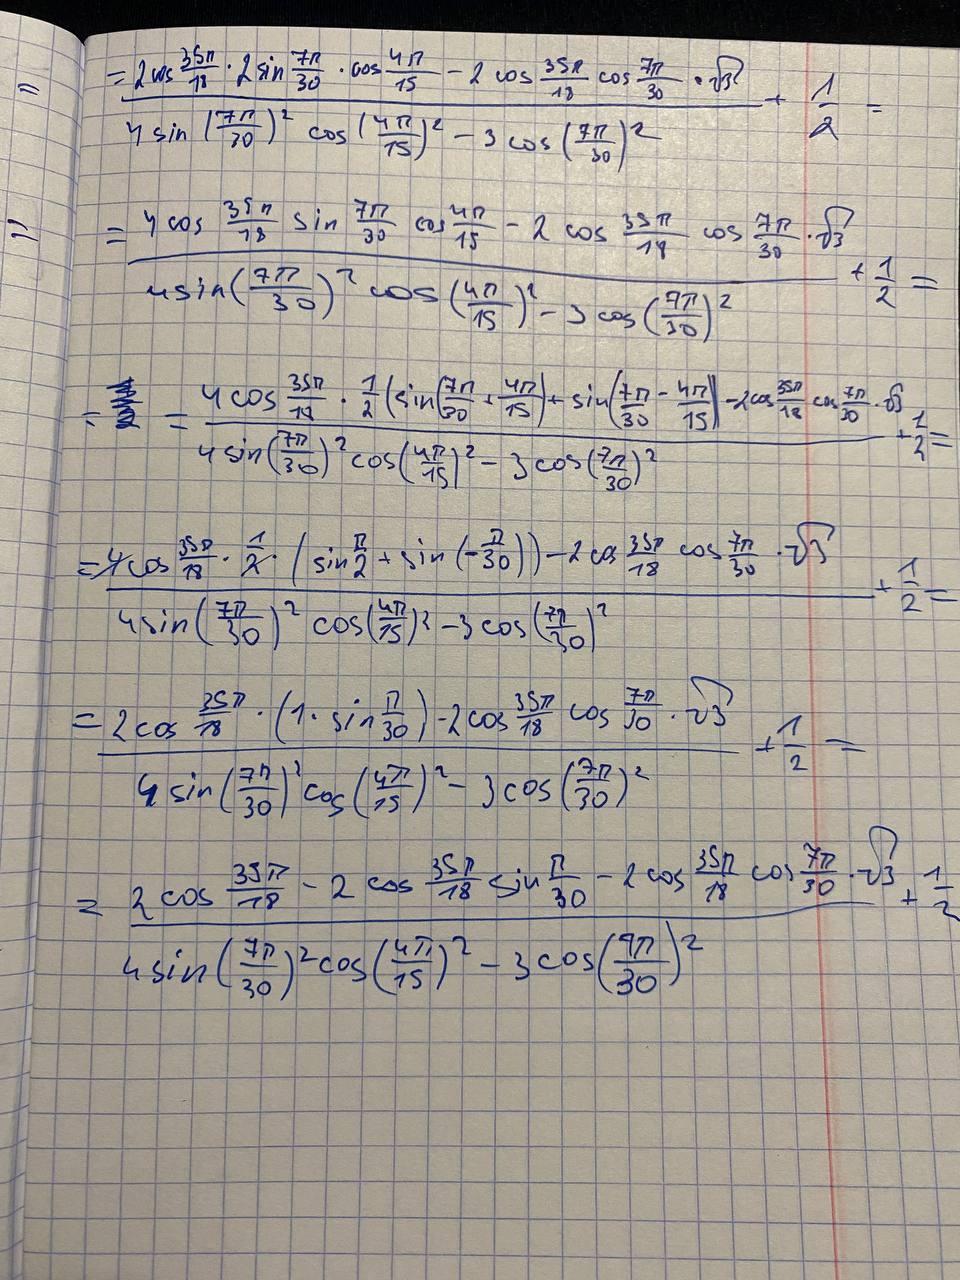 = (2cos 35π/18 · 2sin 7π/30 · cos 4π/15 − 2 cos 35π/18 cos 7π/30 · √3) / (4 sin (7π/30)² cos (4π/15)² − 3 cos (7π/30)²) + 1/2 =
= (4 cos 35π/18 sin 7π/30 cos 4π/15 − 2 cos 35π/18 cos 7π/30 · √3) / (4 sin (7π/30)² cos (4π/15)² − 3 cos (7π/30)²) + 1/2 =
= = (4 cos 35π/18 · 1/2 (sin(7π/30 + 4π/15) + sin(7π/30 − 4π/15)) − 2cos 35π/18 cos 7π/30 · √3) / (4 sin(7π/30)² cos(4π/15)² − 3 cos(7π/30)²) + 1/2 =
= (4 cos 35π/18 · 1/2 · (sin π/2 + sin (−π/30)) − 2 cos 35π/18 cos 7π/30 · √3) / (4 sin(7π/30)² cos(4π/15)² − 3 cos(7π/30)²) + 1/2 =
= (2 cos 35π/18 · (1 · sin π/30) − 2 cos 35π/18 cos 7π/30 · √3) / (4 sin(7π/30)² cos(4π/15)² − 3 cos(7π/30)²) + 1/2 =
= (2 cos 35π/18 − 2 cos 35π/18 sin π/30 − 2 cos 35π/18 cos 7π/30 · √3) / (4 sin(7π/30)² cos(4π/15)² − 3 cos(7π/30)²) + 1/2